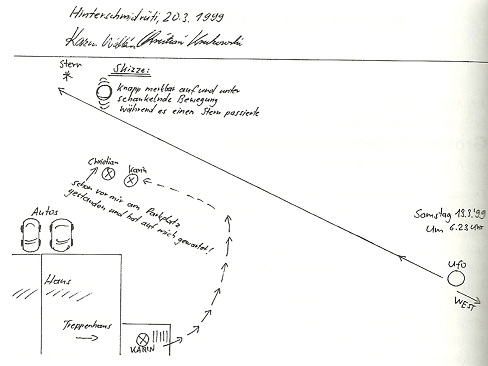 Hinterschmidrüti, 20.3.1999
Karin Christian Krukowski
Stern
Skizze:
Knapp merkbar auf und unter
schaukelnde Bewegung
während es einen Stern passierte
Christian
Karin
schon vor mir am Parkplatz
gestanden und hat auf mich gewartet!
Samstag 13.3.99
Um 6.23 Uhr
Ufo
WEST
Autos
Haus
Treppenhaus
KARIN